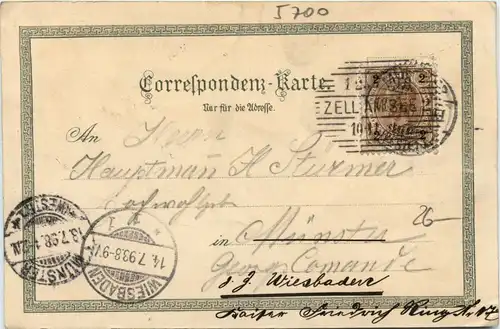 5700
Correspondenz-Karte
Nur für die Adresse.
2 2
ZELL AM SEE
An Herrn
Hauptmann H Stürmer
Hochwohlgeb
in Münster
26-
z. Z. Wiesbaden
Kaiser Friedrich Ring Nr. 17
MÜNSTER WESTF.
13.7.98
WIESBADEN
14.7.98.8-9V.
1